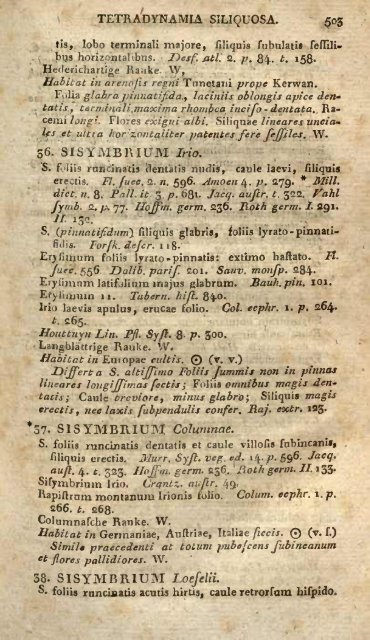 TETRADYNAMIA SILIQUOSA. 503
tis, lobo terminali majore, siliquis subulatis sessili-
bus horizontalibus. Desf. atl. 2. p. 84. t. 158.
Hederichartige Rauke. W.
Habitat in arenosis regni Tunetani prope Kerwan.
Folia glabra pinnatifida, laciniis oblongis apice den-
tatis, terminali maxima rhombea inciso-dentata. Ra-
cemi longi. Flores exigui albi. Siliquae lineares uncia-
les et ultra horizontaliter patentes fere sessiles. W.
36. SISYMBRIUM Irio.
S. foliis runcinatis dentatis nudis, caule laevi, siliquis
erectis. Fl. suec. 2. n. 596. Amoen 4. p. 279. * Mill.
dict. n. 8. Pall. it. 3. p. 681. Jacq. austr. t. 322. Vahl
symb. 2. p. 77. Hoffm. germ. 236. Roth germ. I. 291.
II. 132.
S. (pinnatifidum) siliquis glabris, foliis lyrato-pinnati-
fidis. Forsk. descr. 118.
Erysimum foliis lyrato-pinnatis: extimo hastato. Fl.
suec. 556 Dalib. paris. 201. Sauv. monsp. 284.
Erysimum latifolium majus glabrum. Bauh. pin. 101.
Erysimum 11. Tabern. hist. 840.
Irio laevis apulus, erucae folio. Col. ecphr. 1. p. 264.
t. 265.
Houttuyn Lin. Pfl. Syst. 8. p. 300.
Langblättrige Rauke. W.
Habitat in Europae cultis. ☉ (v. v.)
Differt a S. altissimo Foliis summis non in pinnas
lineares longissimas sectis; Foliis omnibus magis den-
tatis; Caule breviore, minus glabro; Siliquis magis
erectis, nec laxis subpendulis confer. Raj. extr. 123.
*37. SISYMBRIUM Columnae.
S. foliis runcinatis dentatis et caule villosis subincanis,
siliquis erectis. Murr. Syst. veg. ed. 14. p. 596. Jacq.
aust. 4. t. 323. Hoffm. germ. 236. Roth germ. II. 133.
Sisymbrium Irio. Crantz. austr. 49.
Rapistrum montanum Irionis folio. Colum. ecphr. 1. p.
266. t. 268.
Columnasche Rauke. W.
Habitat in Germaniae, Austriae, Italiae siccis. ☉ (v. s.)
Simile praecedenti at totum pubescens subincanum
et flores pallidiores. W.
38. SISYMBRIUM Loeselii.
S. foliis runcinatis acutis hirtis, caule retrorsum hispido.